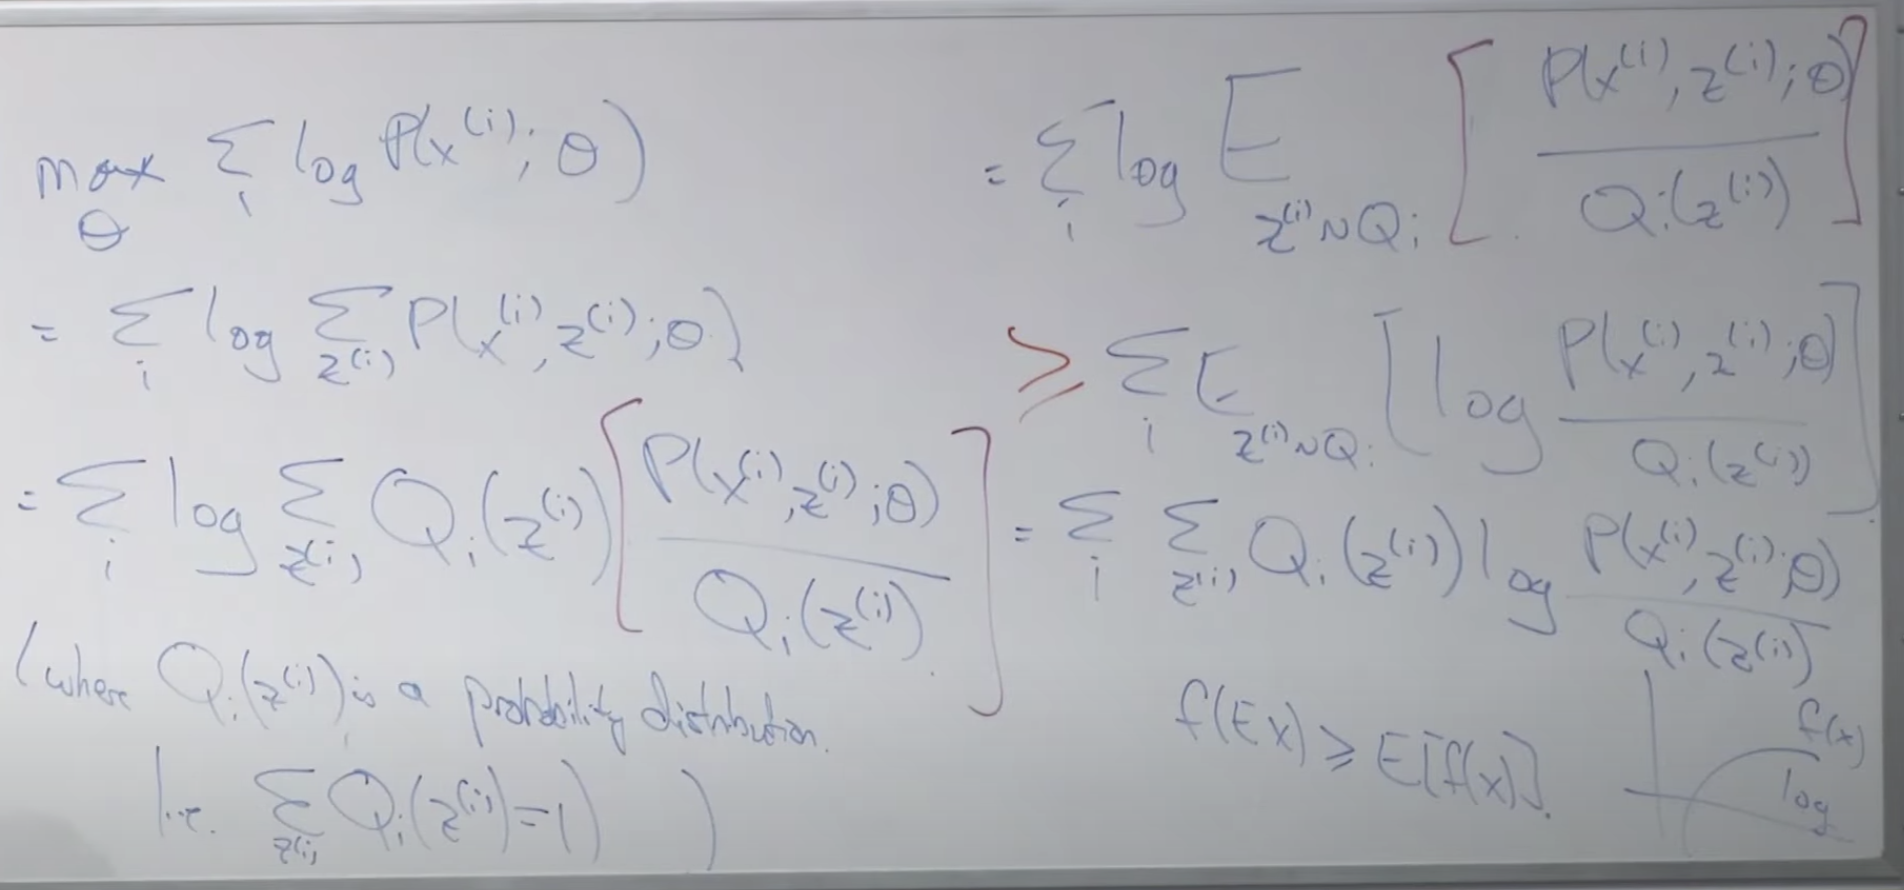 max_θ Σ_i log P(x^(i); θ)
= Σ_i log Σ_{z^(i)} P(x^(i), z^(i); θ)
= Σ_i log Σ_{z^(i)} Q_i(z^(i)) [ P(x^(i), z^(i); θ) / Q_i(z^(i)) ]
(where Q_i(z^(i)) is a probability distribution.
I.e. Σ_{z^(i)} Q_i(z^(i)) = 1) )
= Σ_i log E_{z^(i) ~ Q_i} [ P(x^(i), z^(i); θ) / Q_i(z^(i)) ]
≥ Σ_i E_{z^(i) ~ Q_i} [ log P(x^(i), z^(i); θ) / Q_i(z^(i)) ]
= Σ_i Σ_{z^(i)} Q_i(z^(i)) log P(x^(i), z^(i); θ) / Q_i(z^(i))
f(EX) ≥ E[f(x)].
f(x)
log